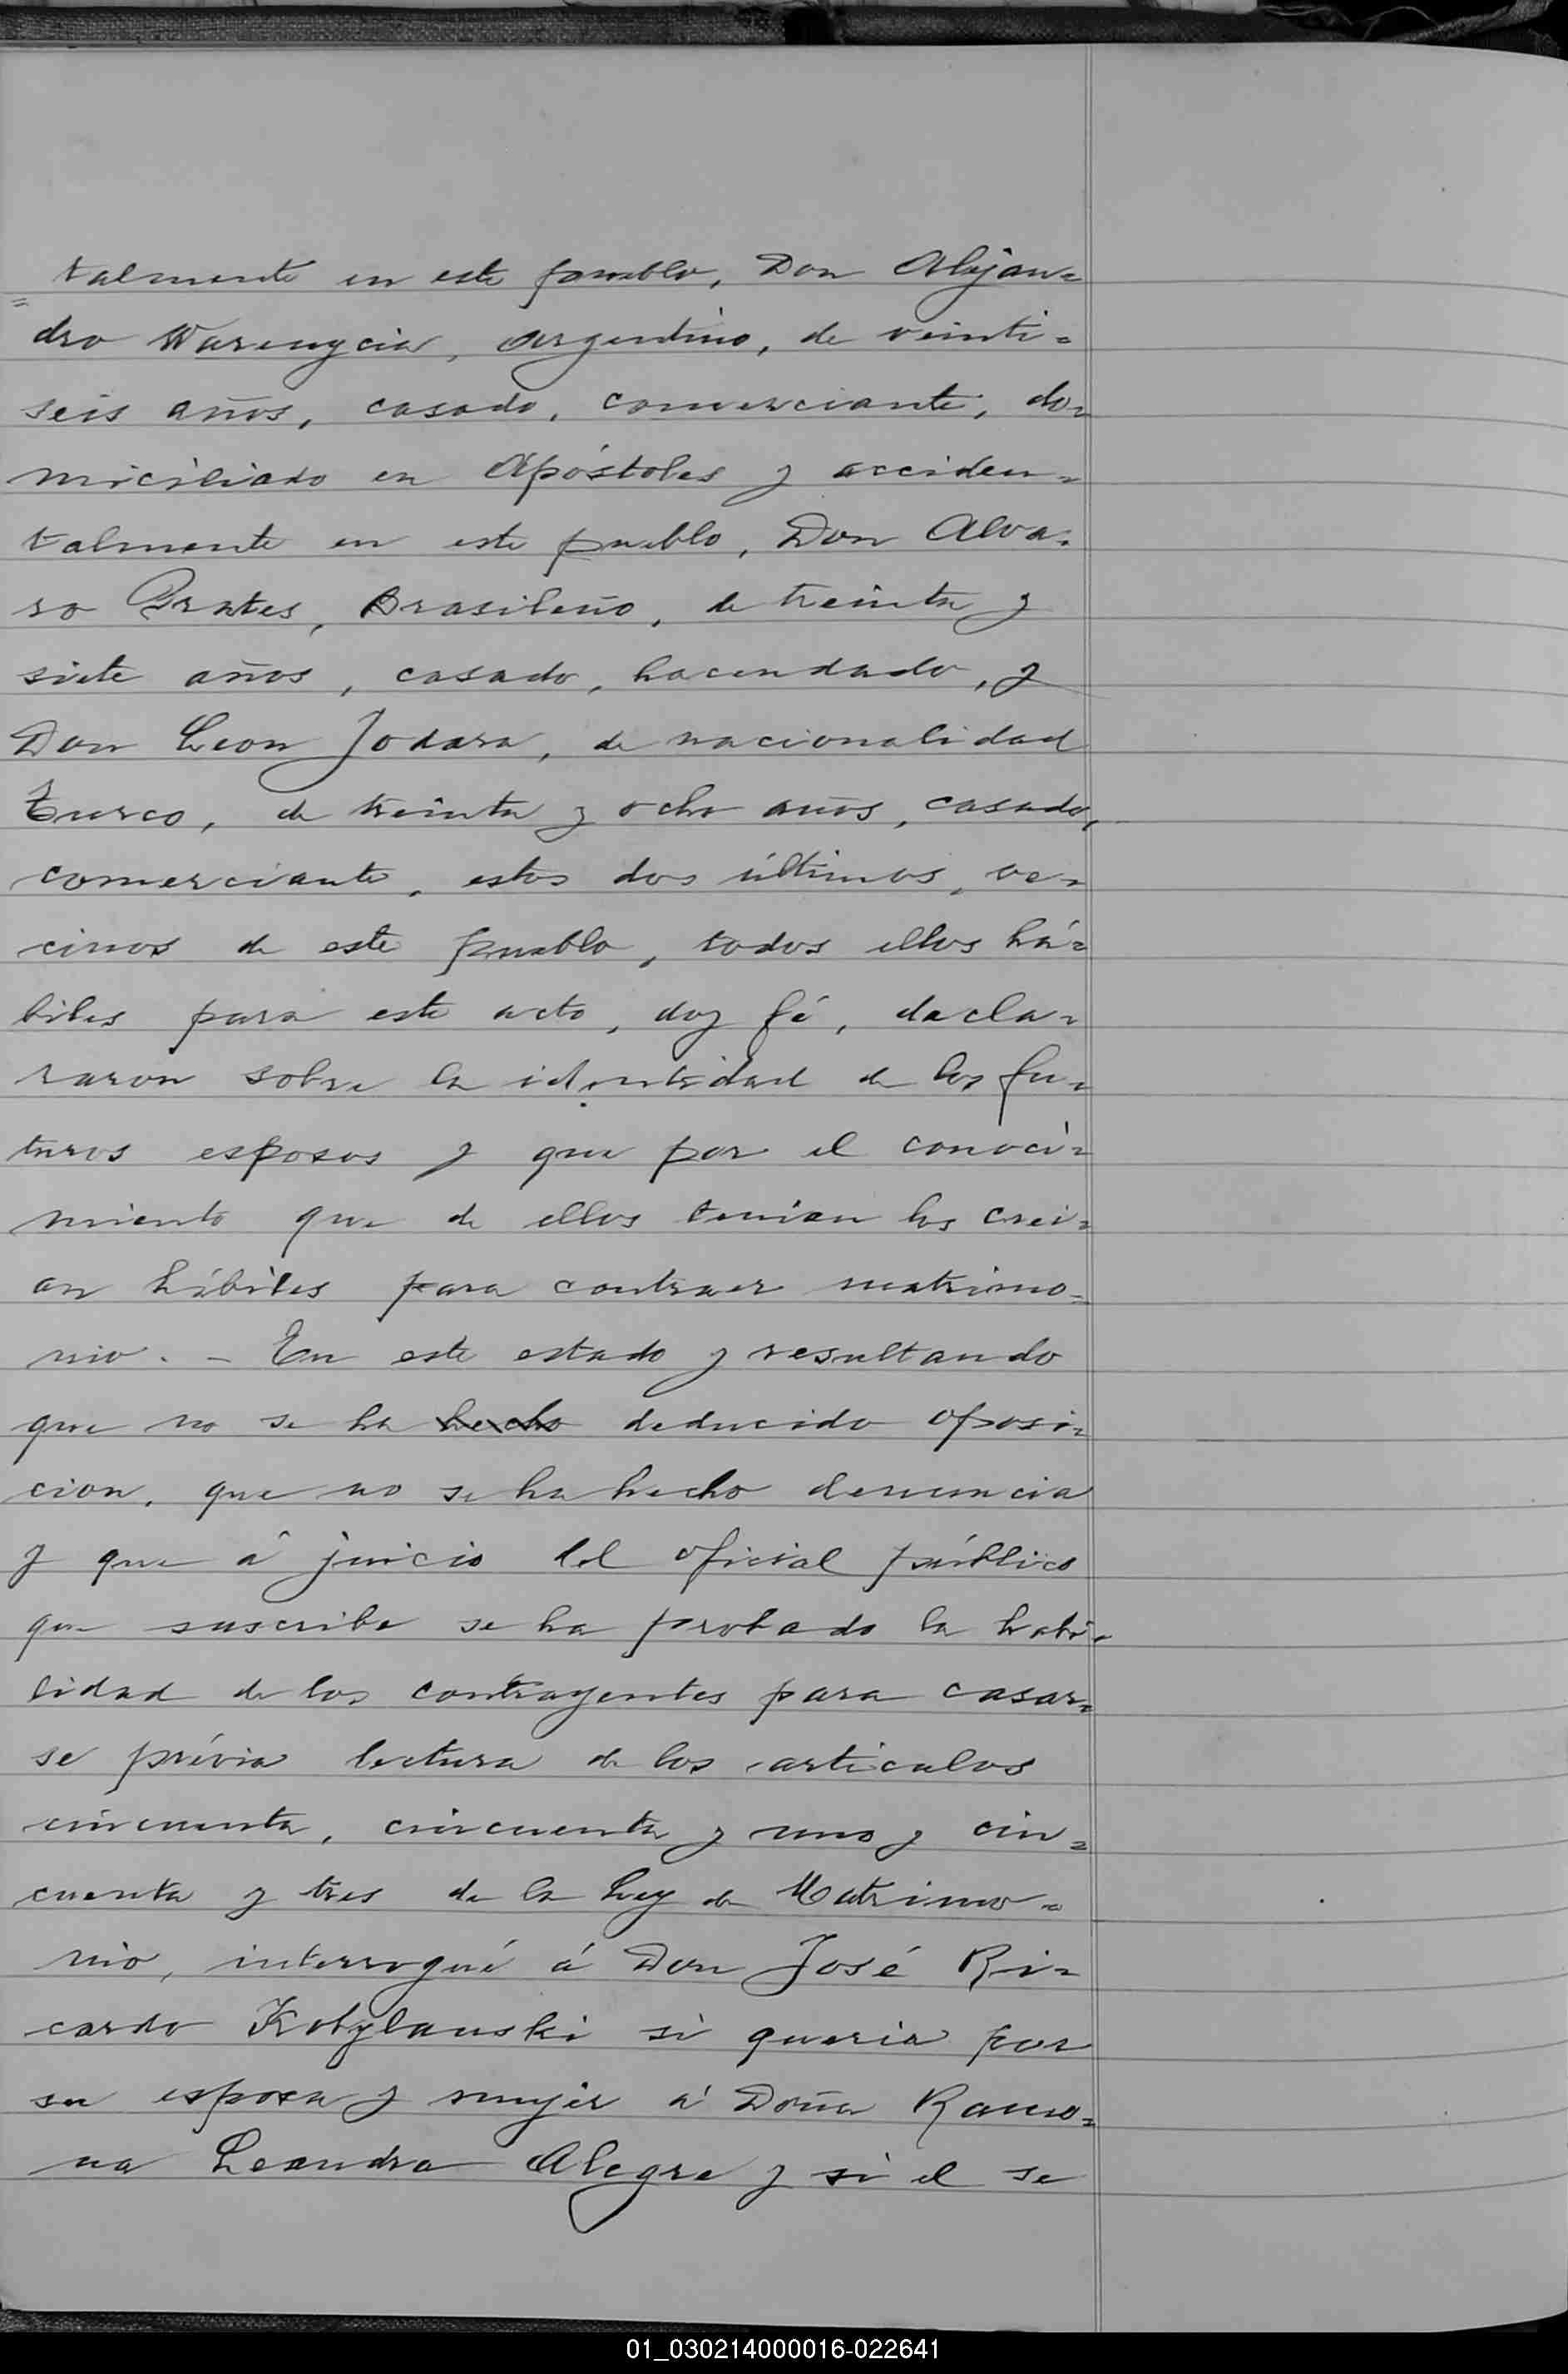 talmente en este pueblo, Don Alejan=
=dro Warenycia, argentino, de veinti=
seis años, casado, comerciante, do=
miciliado en Apóstoles y acciden=
talmente en este pueblo, Don Alva=
ro Prates, Brasileño, de treinta y
siete años, casado, hacendado, y
Don Leon Jodara, de nacionalidad
turco, de treinta y ocho años, casado,
comerciante, estos dos últimos, ve=
cinos de este pueblo, todos ellos há=
biles para este acto, doy fé, decla=
raron sobre la identidad de los fu=
turos esposos y que por el conoci=
miento que de ellos tenian los crei=
an hábiles para contraer matrimo=
nio. - En este estado y resultando
que no se ha hecho deducido oposi=
cion, que no se ha hecho denuncia
y que á juicio del oficial público
que suscribe se ha probado la habi=
lidad de los contrayentes para casar=
se prévia lectura de los articulos
cincuenta, cincuenta y uno y cin=
cuenta y tres de la Ley de Matrimo=
nio, interrogué á Don José Ri=
cardo Kobylanski si queria por
su esposa y mujer á Doña Ramo=
na Leandra Alegre y si el se
01_030214000016-022641